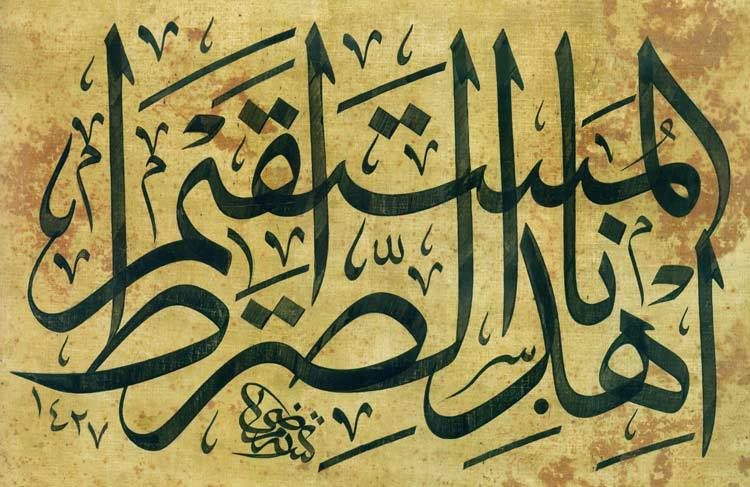 اهْدِنَا الصِّرَاطَ الْمُسْتَقِيمَ
١٤٢٧